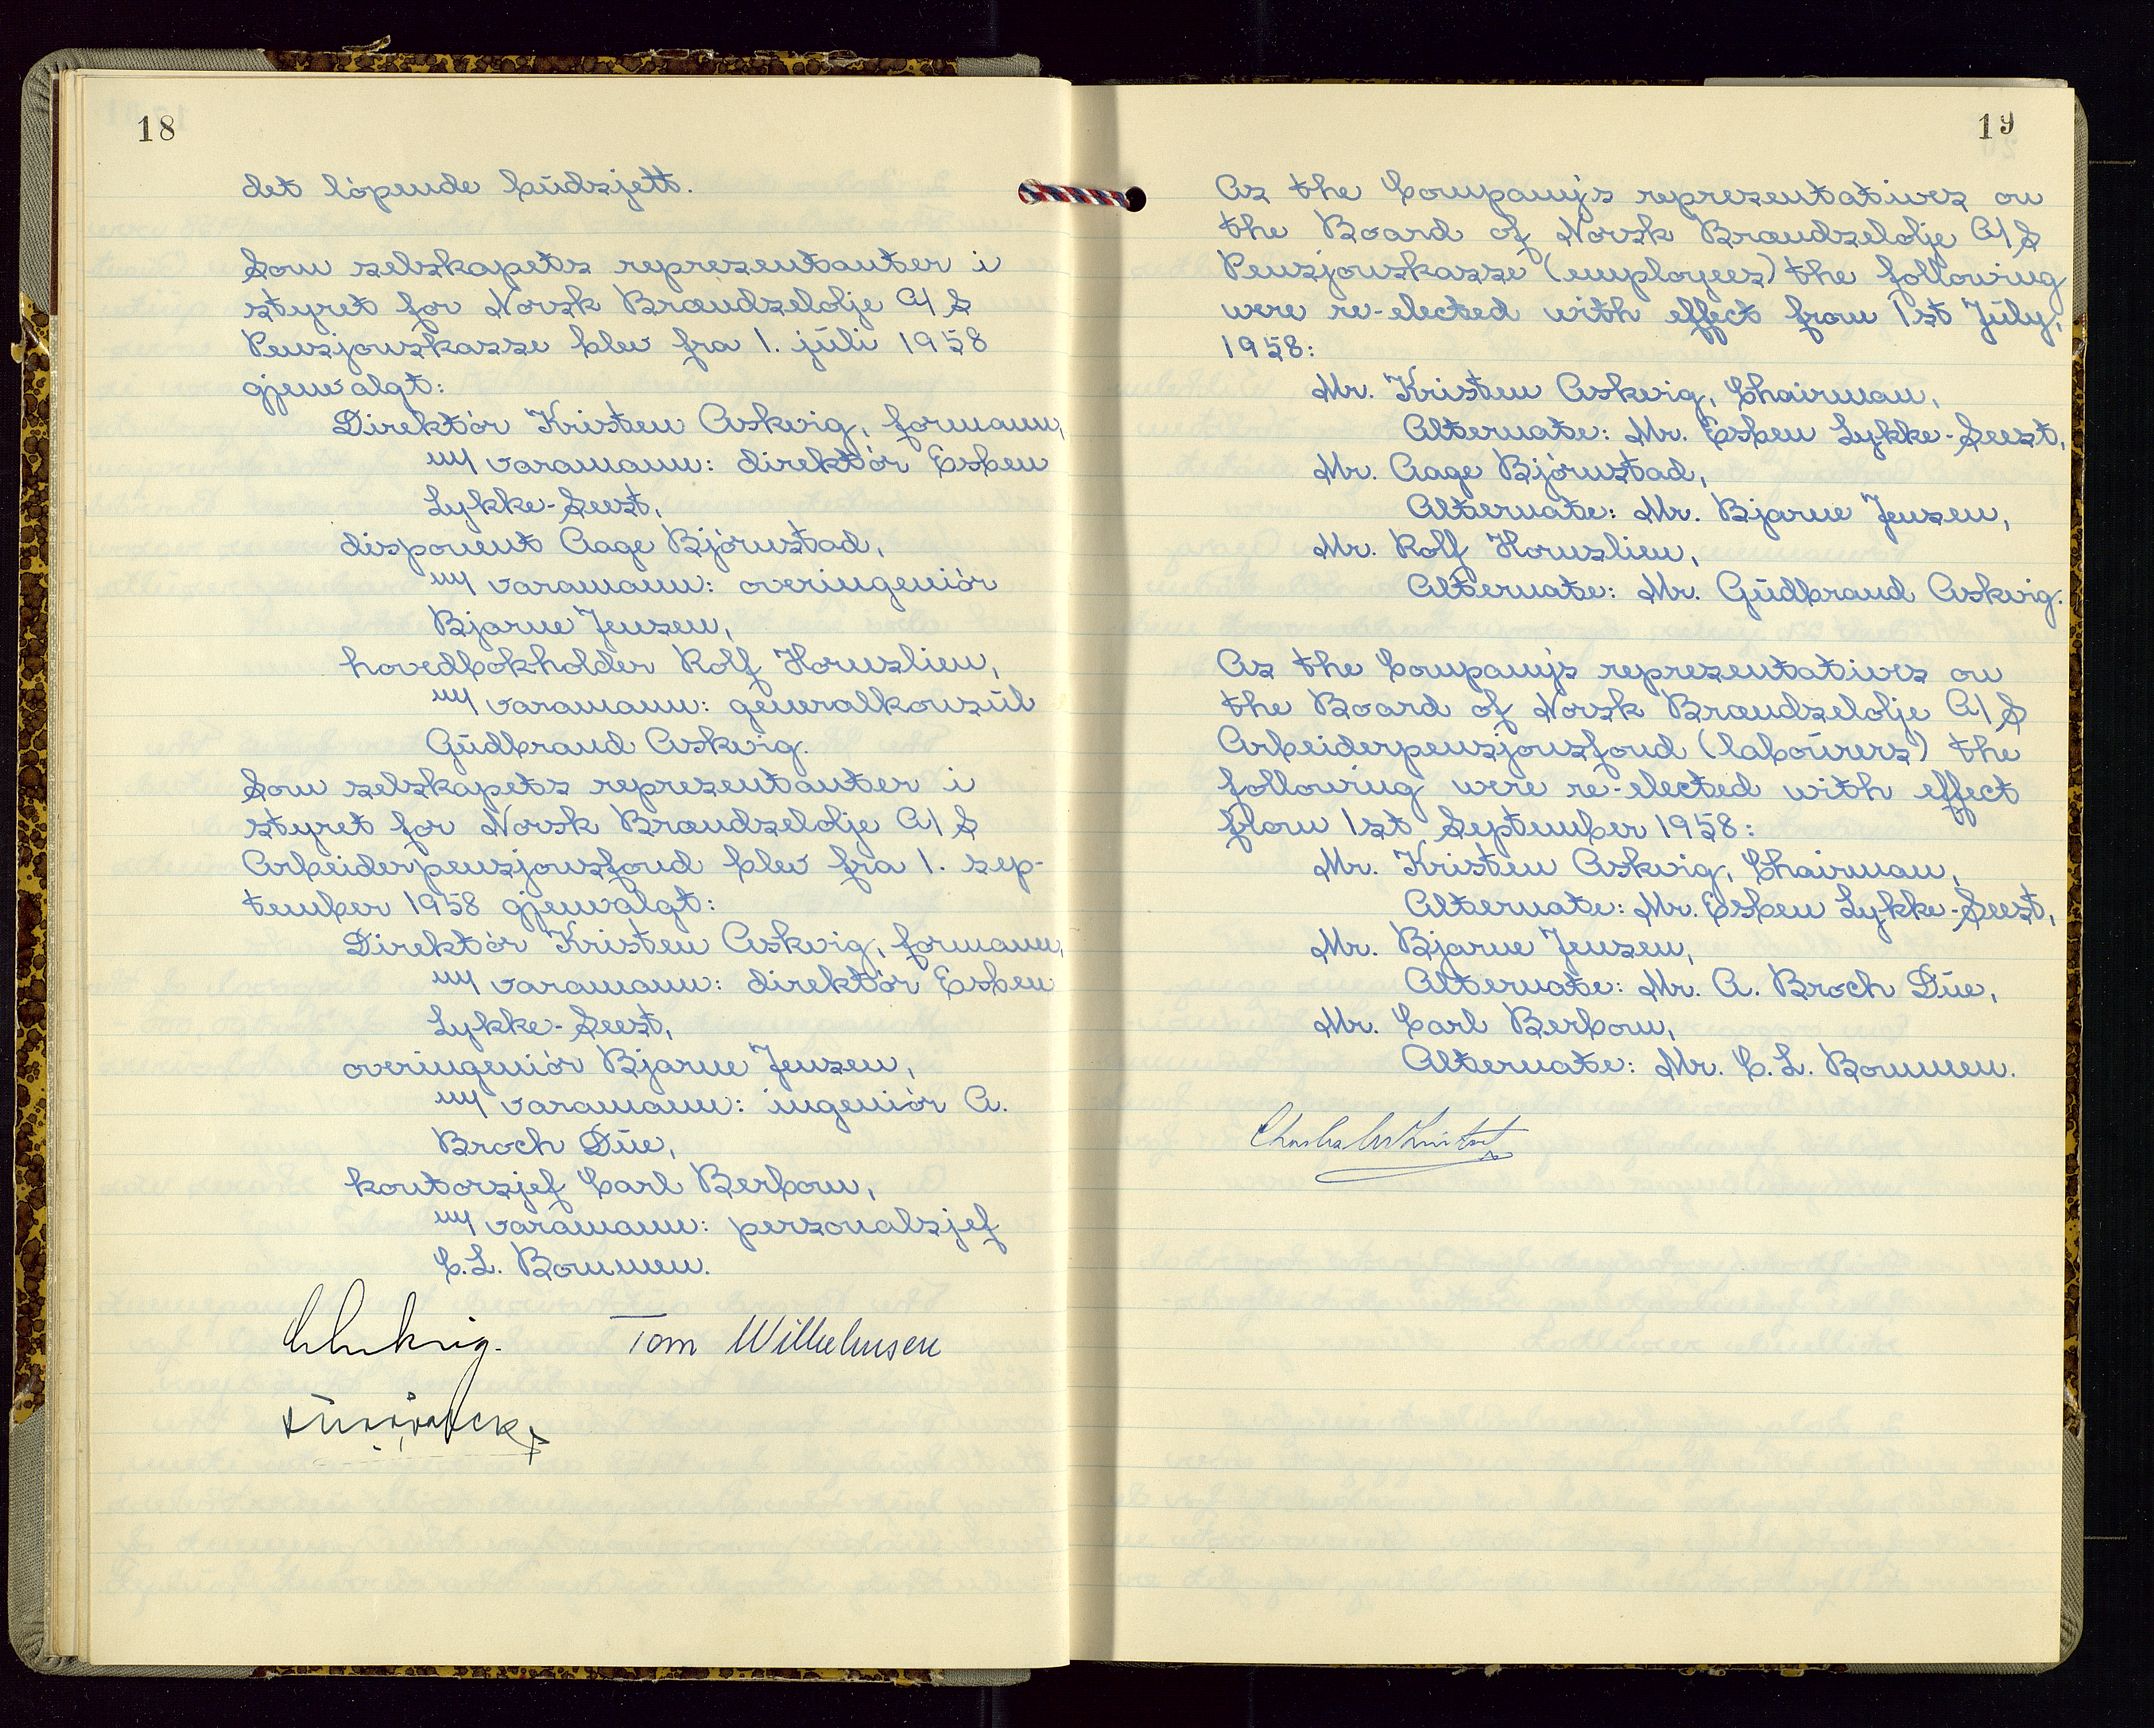 18
det löpende budsjett.
Som selskapets representanter i
styret for Norsk Brændselolje A/S
Pensjonskasse blev fra 1. juli 1958
gjenvalgt:
Direktör Kristen Askvig, formann,
m/ varamann: direktör Esben
Lykke-Seest,
disponent Aage Björnstad,
m/ varamann: overingeniör
Bjarne Jensen,
hovedbokholder Rolf Hornslien,
m/ varamann: generalkonsul
Gudbrand Askvig.
Som selskapets representanter i
styret for Norsk Brændselolje A/S
Arbeiderpensjonsfond blev fra 1. sep-
tember 1958 gjenvalgt:
Direktör Kristen Askvig, formann,
m/ varamann: direktör Esben
Lykke-Seest,
overingeniör Bjarne Jensen,
m/ varamann: ingeniör A.
Broch Due,
kontorsjef Carl Berbom,
m/ varamann: personalsjef
C.L. Bommen.
Tom Wilhelmsen
19
As the Company's representatives on
the Board of Norsk Brændselolje A/S
Pensjonskasse (employees) the following
were re-elected with effect from 1st July,
1958:
Mr. Kristen Askvig, Chairman,
Alternate: Mr. Esben Lykke-Seest,
Mr. Aage Björnstad,
Alternate: Mr. Bjarne Jensen,
Mr. Rolf Hornslien,
Alternate: Mr. Gudbrand Askvig.
As the Company's representatives on
the Board of Norsk Brændselolje A/S
Arbeiderpensjonsfond (labourers) the
following were re-elected with effect
from 1st September 1958:
Mr. Kristen Askvig, Chairman,
Alternate: Mr. Esben Lykke-Seest,
Mr. Bjarne Jensen,
Alternate: Mr. A. Broch Due,
Mr. Carl Berbom,
Alternate: Mr. C.L. Bommen.